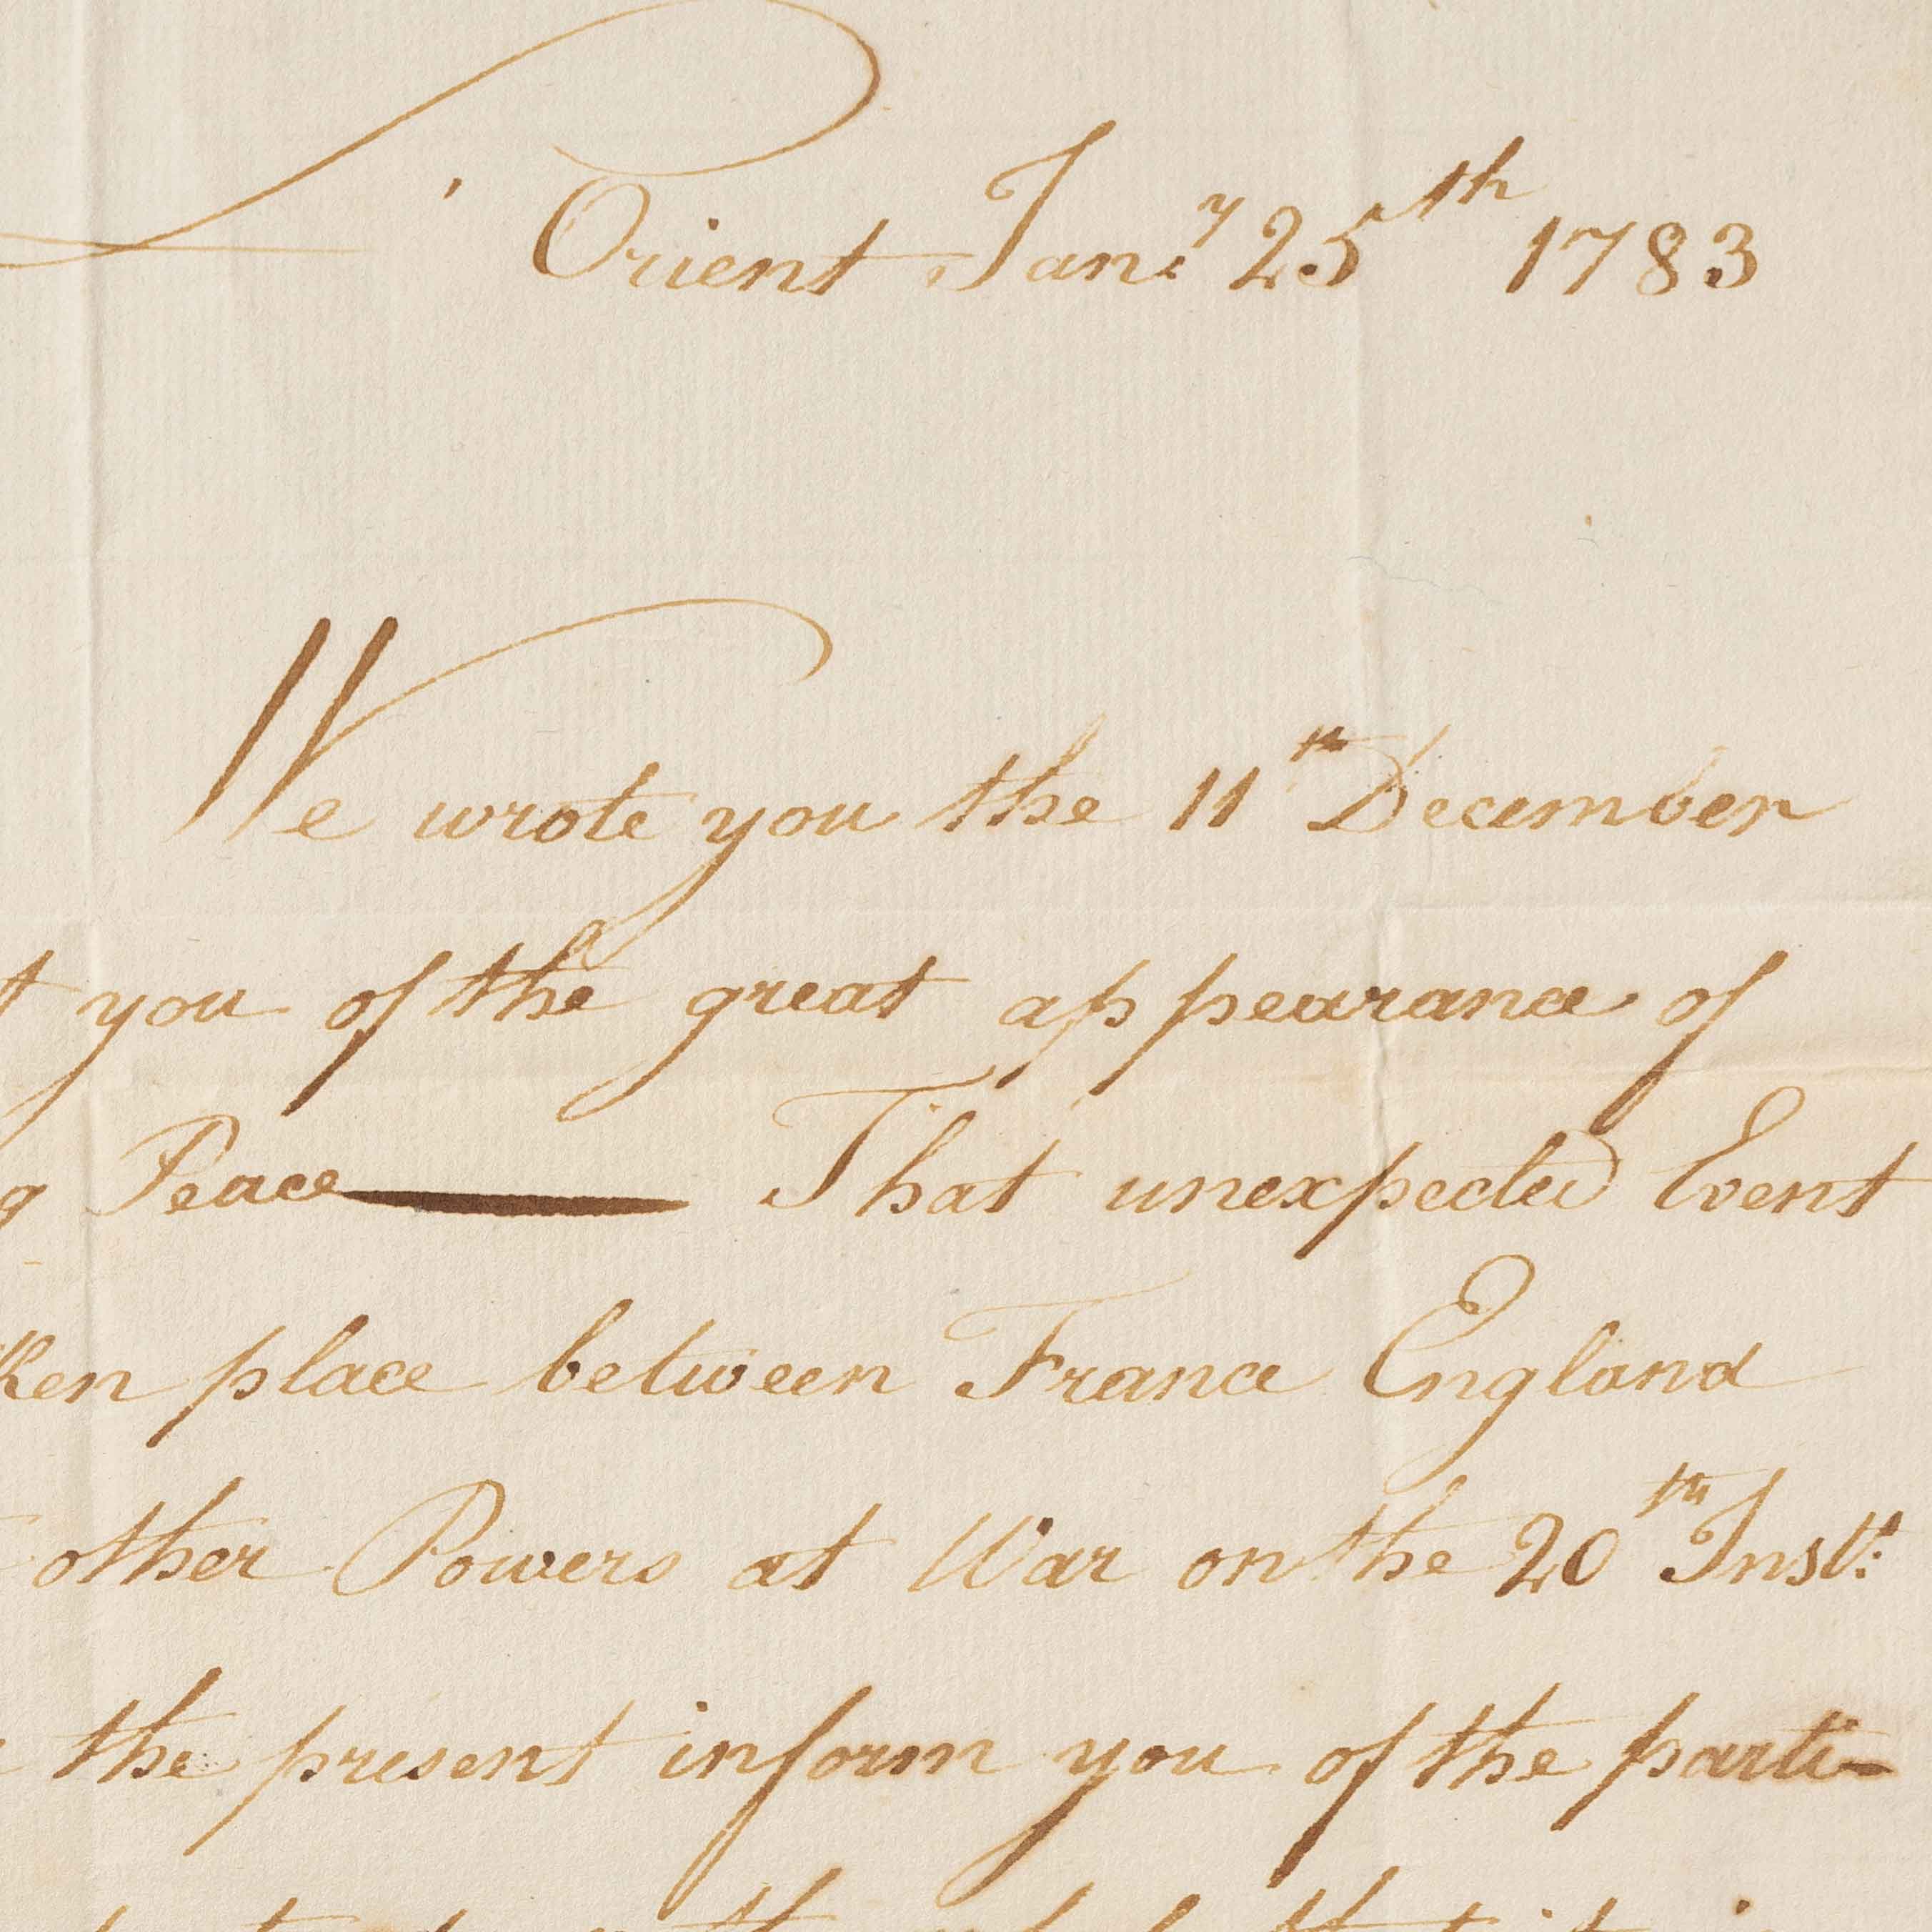 L'Orient Jan.y 25th 1783
We wrote you the 11th December
t you of the great appearance of
g Peace — That unexpected Event
ken place between France England
other Powers at War on the 20th Inst.
the present inform you of the parti-